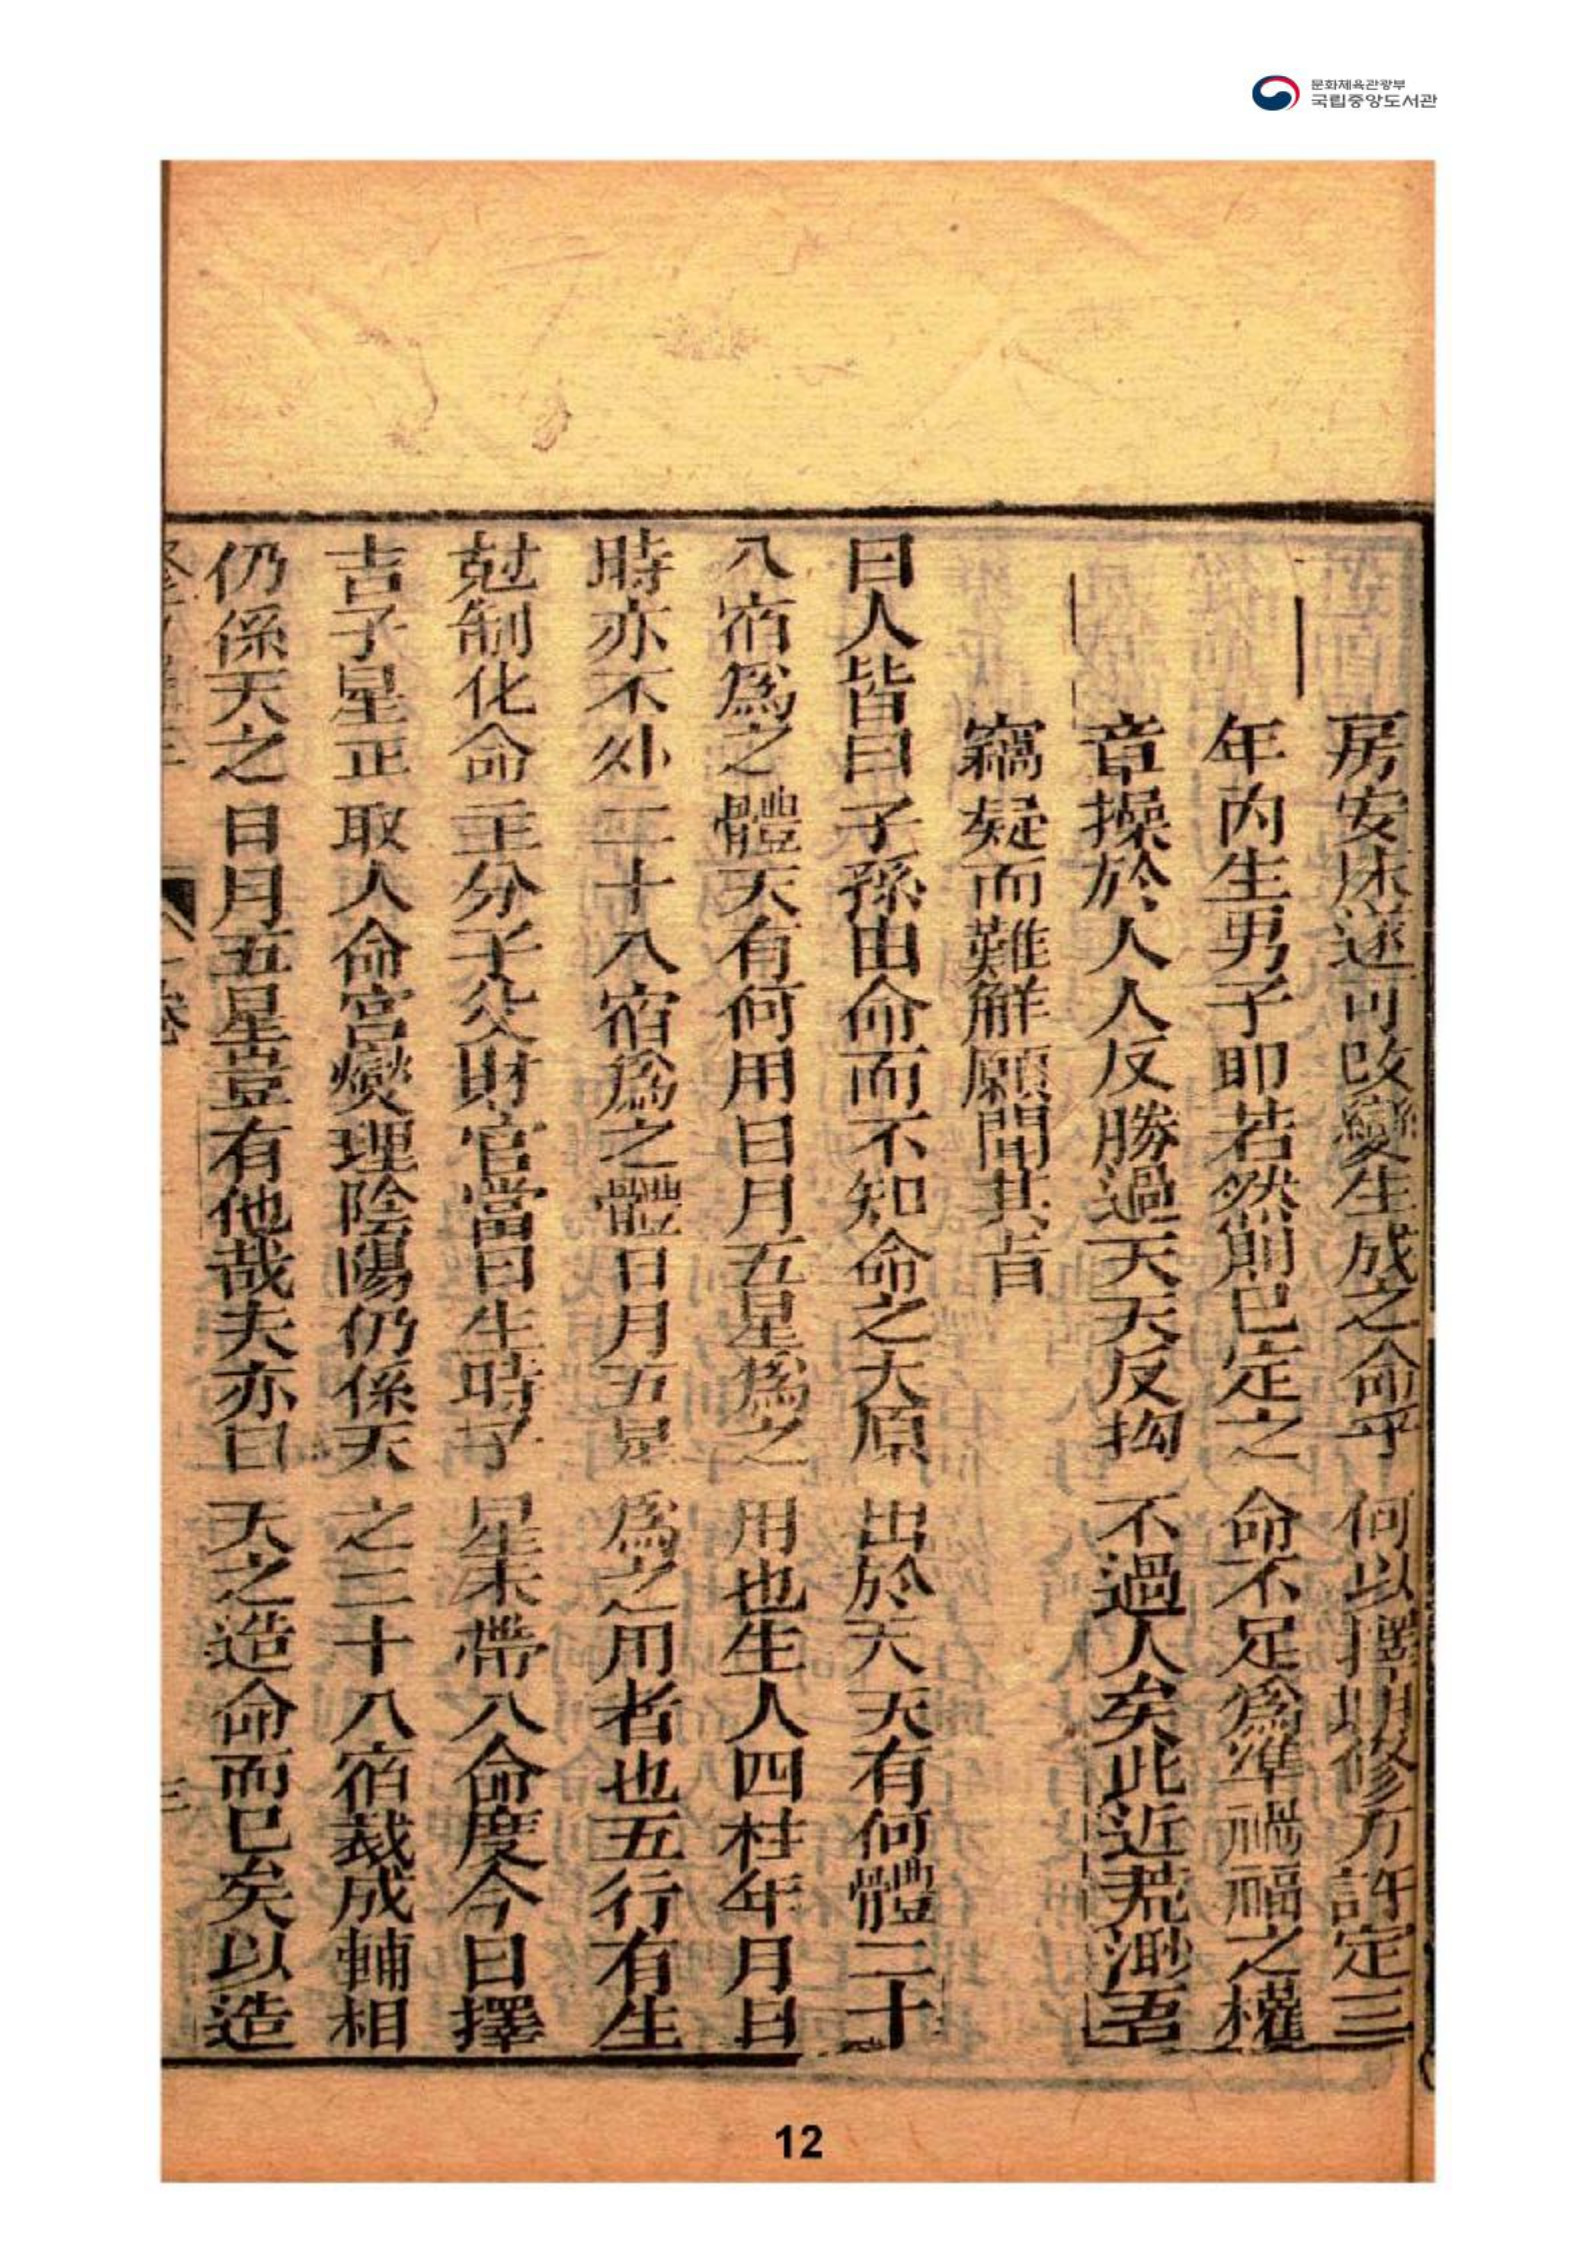 문화체육관광부
국립중앙도서관
房安床遂可改變生成之命乎何以擇期修方許定三
年內生男子卽若然則已定之命不足爲準禍福之權
章操於人人反勝過天天反拗不過人矣此近荒渺吾
竊疑而難解願聞其旨
曰人皆曰子孫由命而不知命之大原出於天天有何體二十
八宿爲之體天有何用日月五星爲之用也生人四柱年月日
時亦不外二十八宿爲之體日月五星爲之用者也五行有生
尅制化命主分子父財官當日生時子星未帶八命度今日擇
吉子星正取人命宮燮理陰陽仍係天之二十八宿裁成輔相
仍係天之日月五星豈有他哉夫亦曰天之造命而已矣以造
12